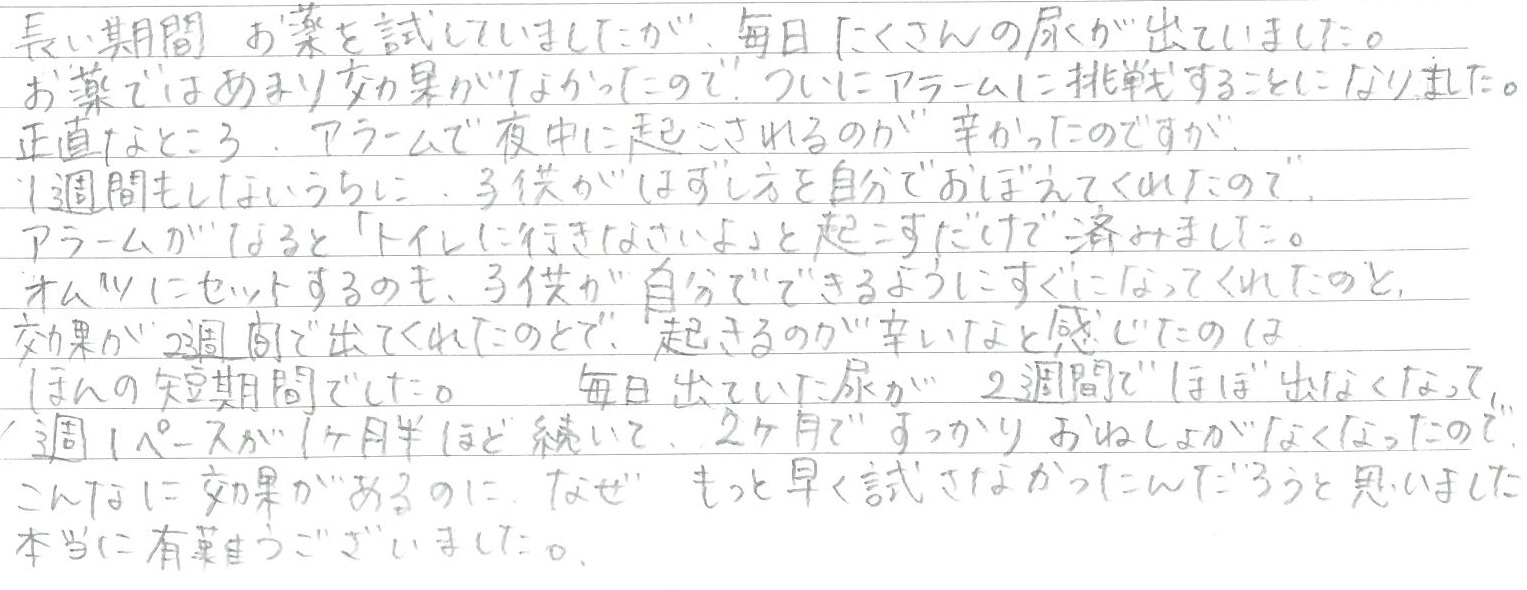 長い期間 お薬を試していましたが、毎日たくさんの尿が出ていました。
お薬ではあまり効果がなかったので、ついにアラームに挑戦することになりました。
正直なところ、アラームで夜中に起こされるのが辛かったのですが、
1週間もしないうちに、子供がはずし方を自分でおぼえてくれたので、
アラームがなると「トイレに行きなさいよ」と起こすだけで済みました。
オムツにセットするのも、子供が自分でできるようにすぐになってくれたのと、
効果が2週間で出てくれたのとで、起きるのが辛いなと感じたのは
ほんの短期間でした。 毎日出ていた尿が 2週間でほぼ出なくなって、
週1ペースが1ヶ月半ほど続いて、2ヶ月ですっかりおねしょがなくなったので、
こんなに効果があるのに、なぜ もっと早く試さなかったんだろうと思いました
本当に有難うございました。